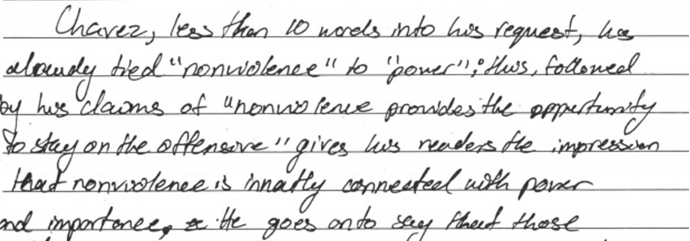 Chavez, less than 10 words into his request, has
already tied "nonviolence" to "power"; this, followed
by his claims of "nonviolence provides the oppertunity
to stay on the offensive" gives his readers the impression
that nonviolence is innatly connected with power
and importance. He goes on to say that those